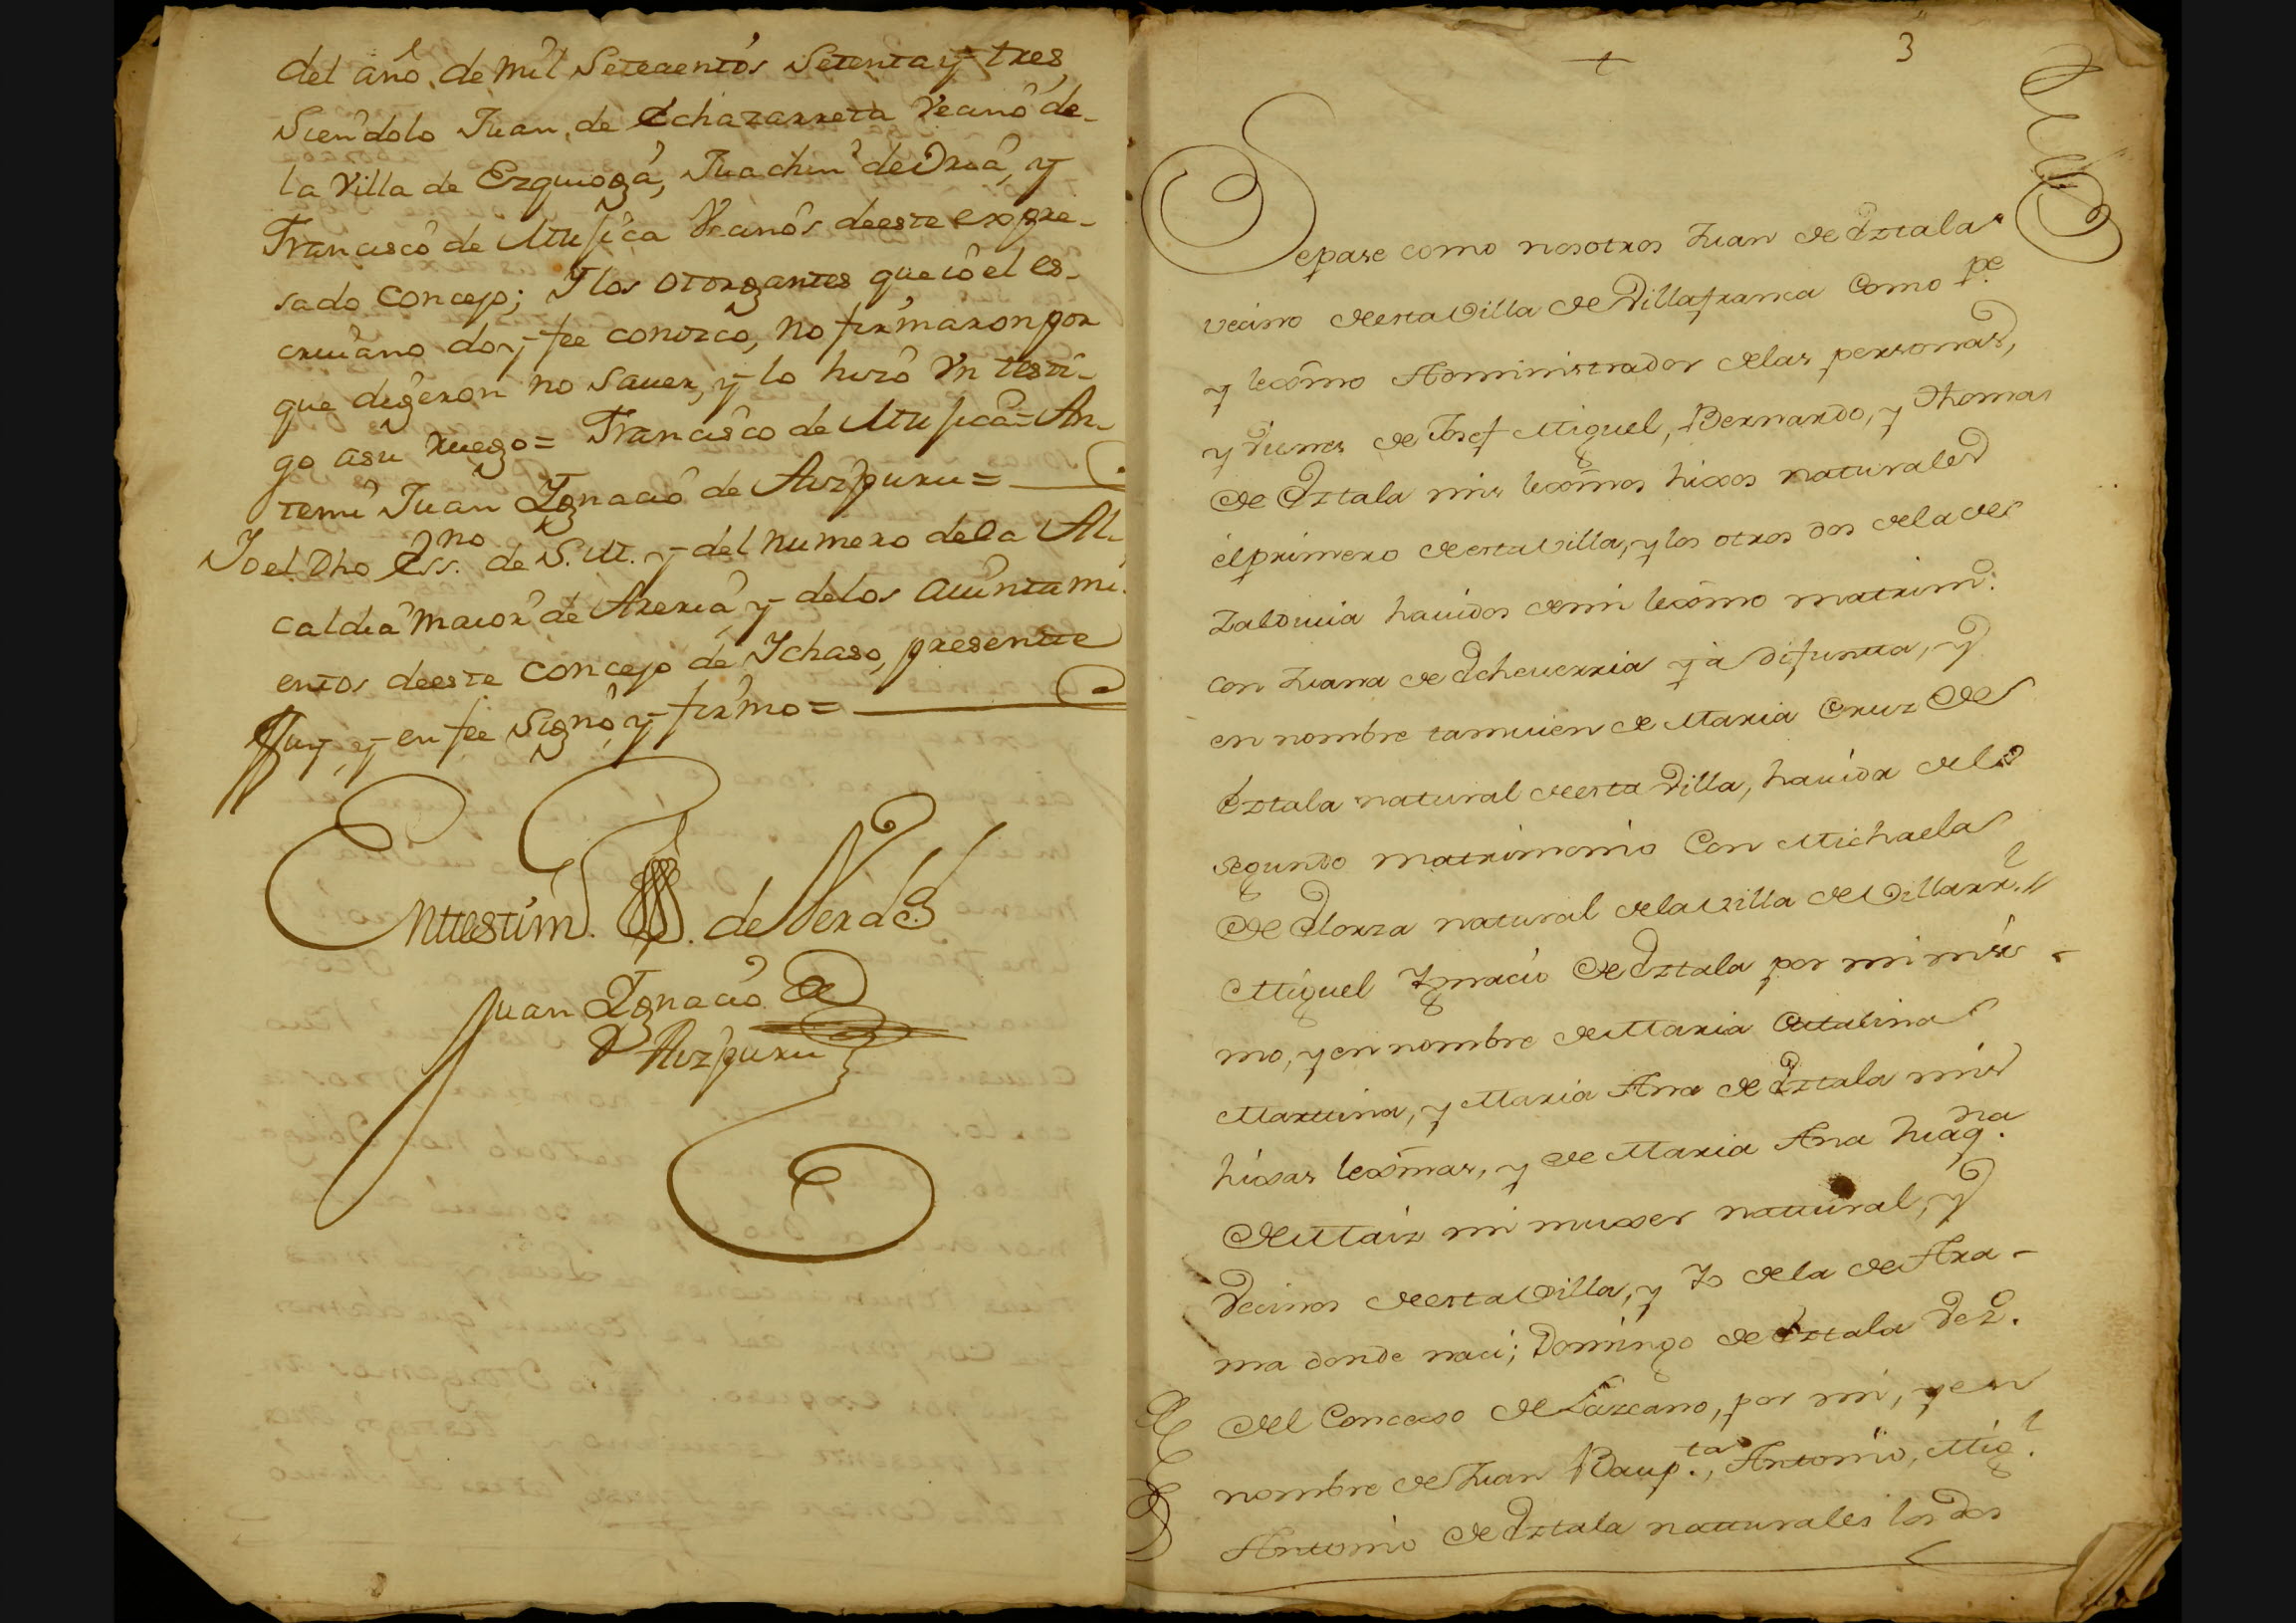 del año, de mil Setecientos Setenta y tres
Siendolo Juan, de Echazarreta Vecino de-
la Villa de Ezquioga, Juachin de Orua, y
Francisco de Mugica Vecinos deeste expre-
sado Concejo; Ylos otorgantes que io el es-
criuano doy fee conozco, no firmaron por
que digeron no Sauer, y lo hizo Vn testi-
go asu ruego = Francisco de Mugica = An-
temi Juan Ygnacio de Aizpuru =
Yo el Dho Ess.no de S.M. y del numero dela Al-
caldia maior de Areria y delos aiuntami-
entos deeste concejo de Ychaso, presente
fuy, y en fee Signo, y firmo =
Enttestim. de Verdad
Juan Ygnacio de
Aizpuru
3
Sepase como nosotros Juan de Yztala
vecino deesta Villa de Villafranca como P.e
y lexmo Administrador delas personas,
y Vienes de Josef Miguel, Bernardo, y Thomas
de Yztala mis lexmos hixos naturales
el primero deesta Villa, y los otros dos dela de
Zaldiuia hauidos demi lexmo matrim.o
con Juana de Echeuerria ya difunta, y
en nombre tamuien de Maria Cruz de
Yztala natural deesta Villa, hauida del
segundo matrimonio Con Michaela
De Elorza natural dela Villa de Villarr.l
Miguel Ygnacio de Yztala por mi mis-
mo, y en nombre de Maria Catalina
Martina, y Maria Ana de Yztala mis
hixas lexmas, y de Maria Ana Juaq.na
de Maiz mi muxer natural, y
Vecinos deesta Villa, y Yo dela de Ara-
ma donde naci; Domingo de Yztala Vez.o
del Concexo de Lazcano, por mi, y en
nombre de Juan Baup.ta, Antonio, Mig.l
Antonio de Yztala naturales los dos